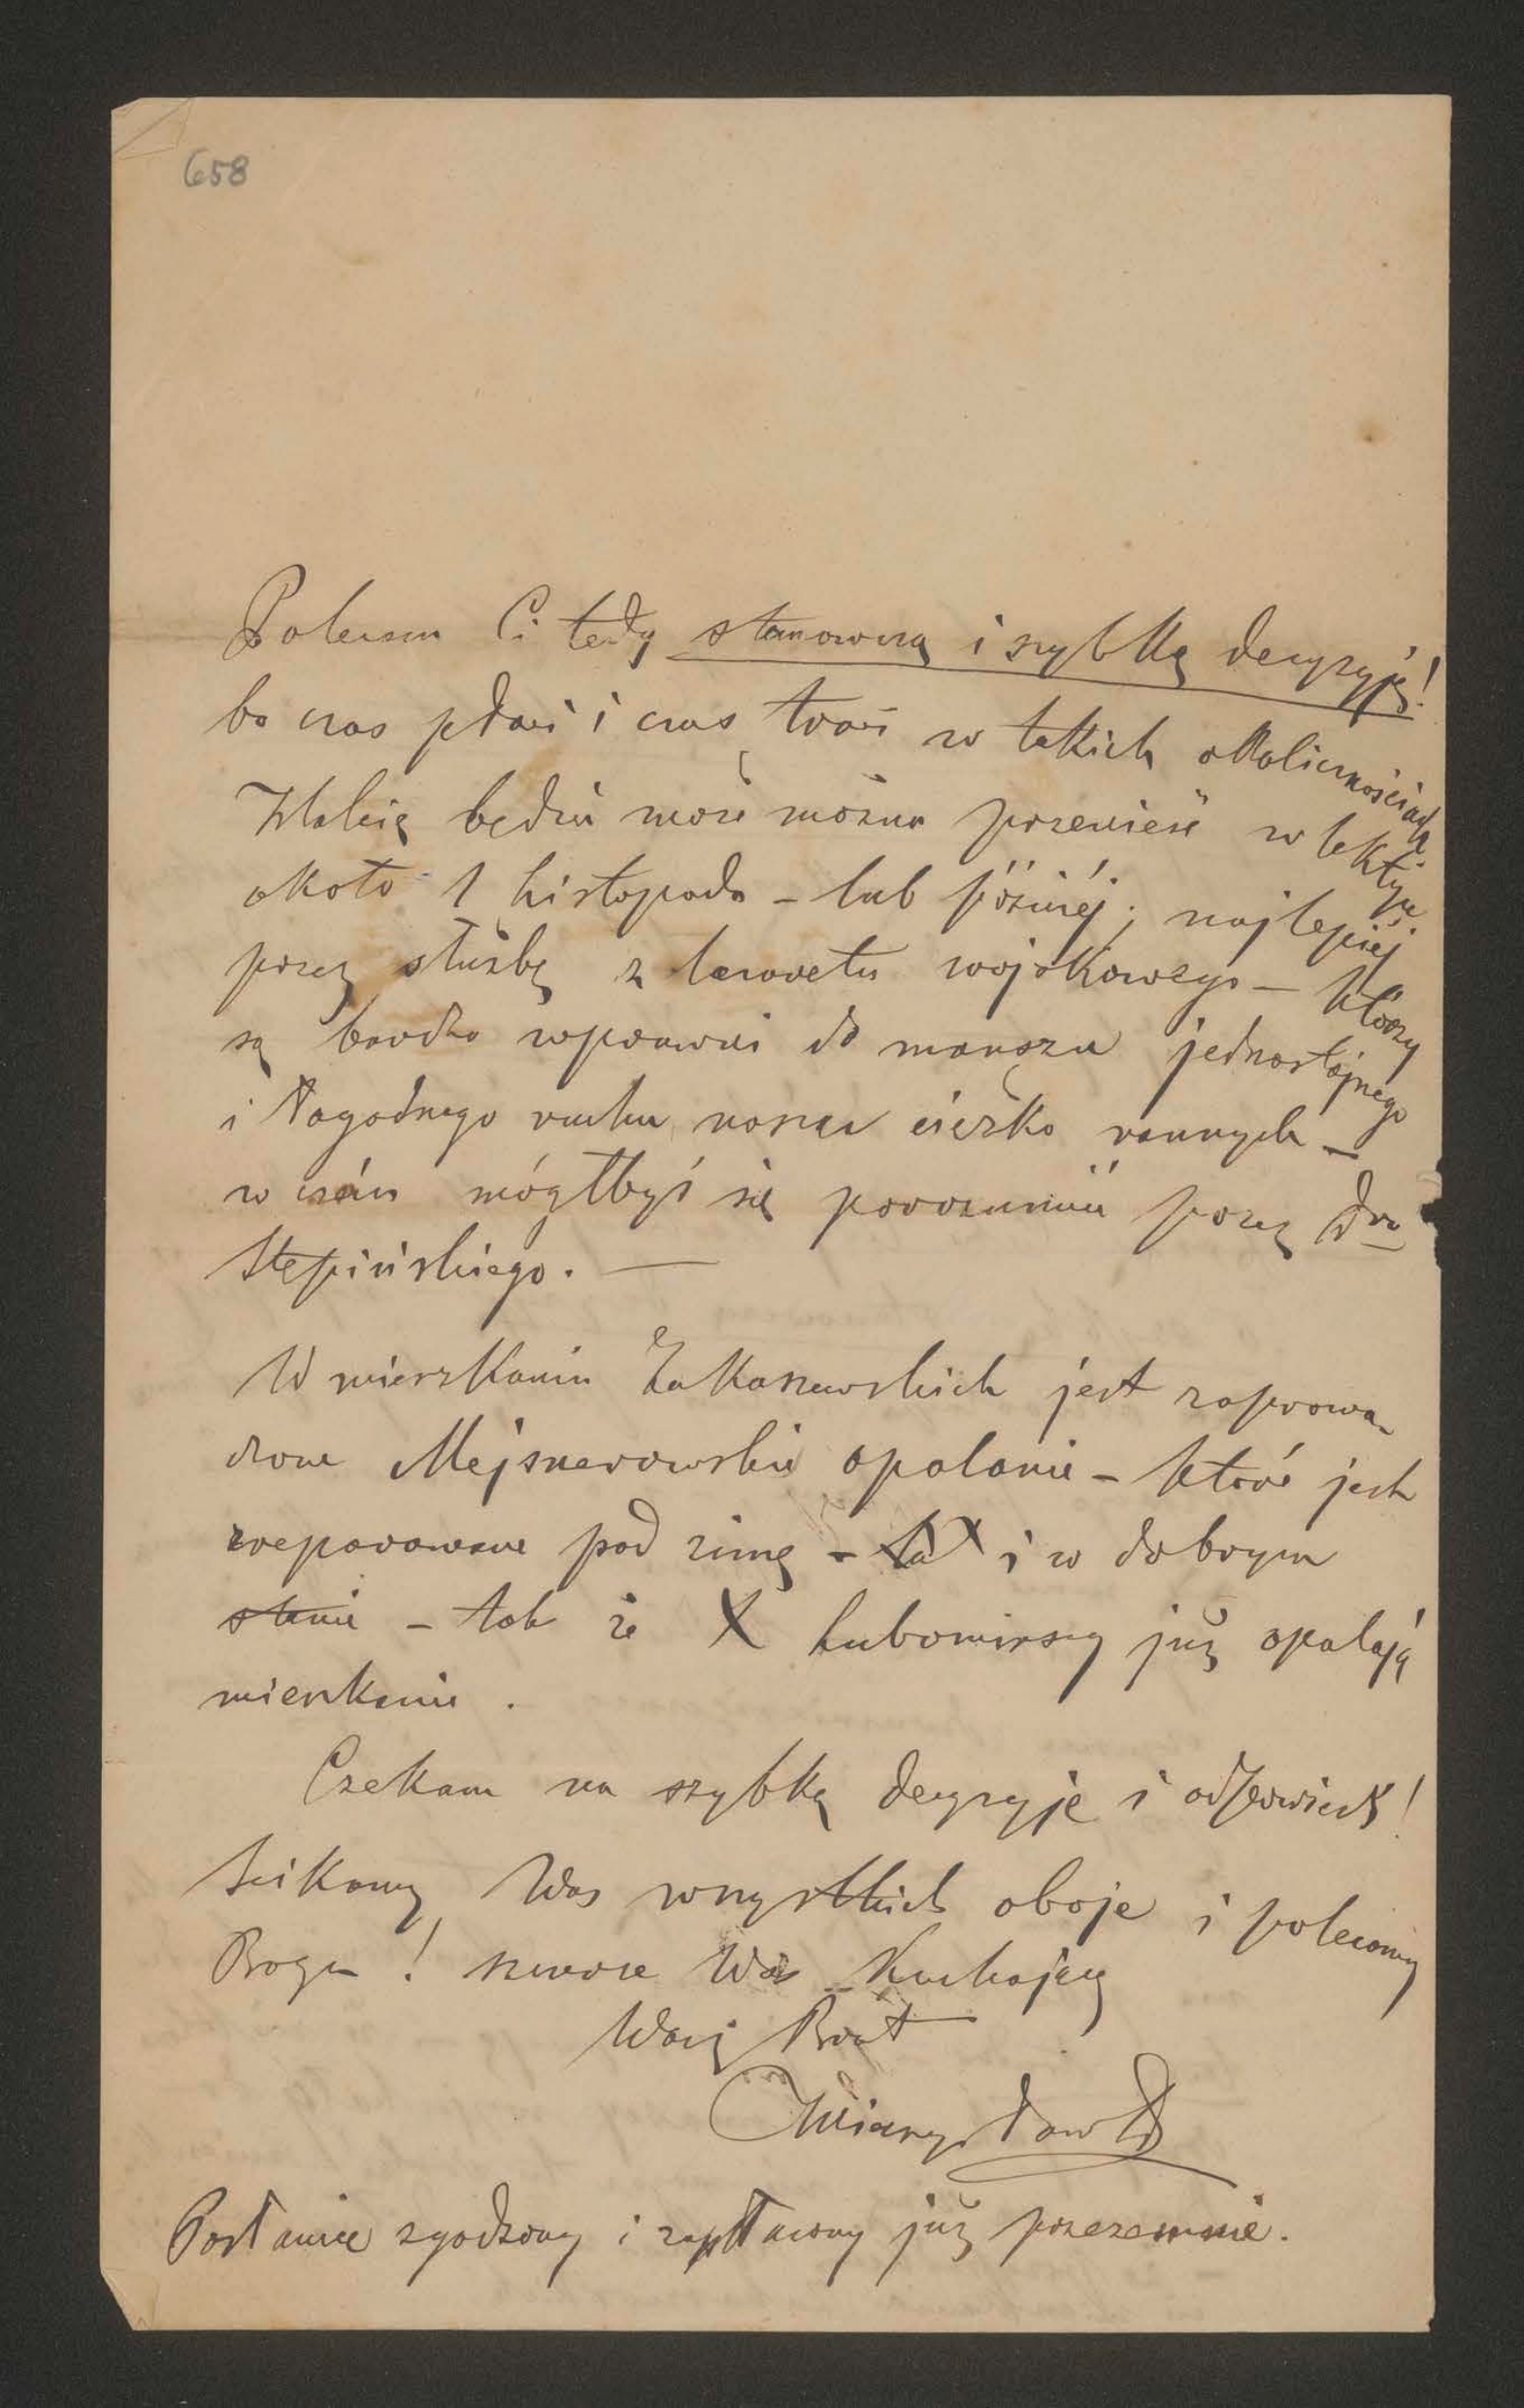 658
Polecam Ci tedy stanowczą i szybką decyzyję!
bo czas płaci i czas traci w takich okolicznościach
Halcię będzie może można przenieść w lektyce
około 1 Listopada – lub później; najlepiej
przez służbę z lazaretu wojskowego – którzy
są bardzo wprawni do marszu jednostajnego
i łagodnego ruchu, nosząc ciężko rannych –
w czém mógłbyś się porozumieć przez Dra
Stępińskiego. —
W mieszkaniu Zakaszewskich jest zaprowa-
dzone Mejsnerowskie opalanie – które jest
zreparowane pod zimę – i w dobrym
stanie – tak że X Lubomirscy już opalają
mieszkanie .
Czekam na szybką decyzyje i odpowiedź!
Ściskamy Was wszystkich oboje i polecamy
Bogu ! szczerze Was Kochający
Wasz Brat
Posłaniec zgodzony i zapłacony już przezemnie.